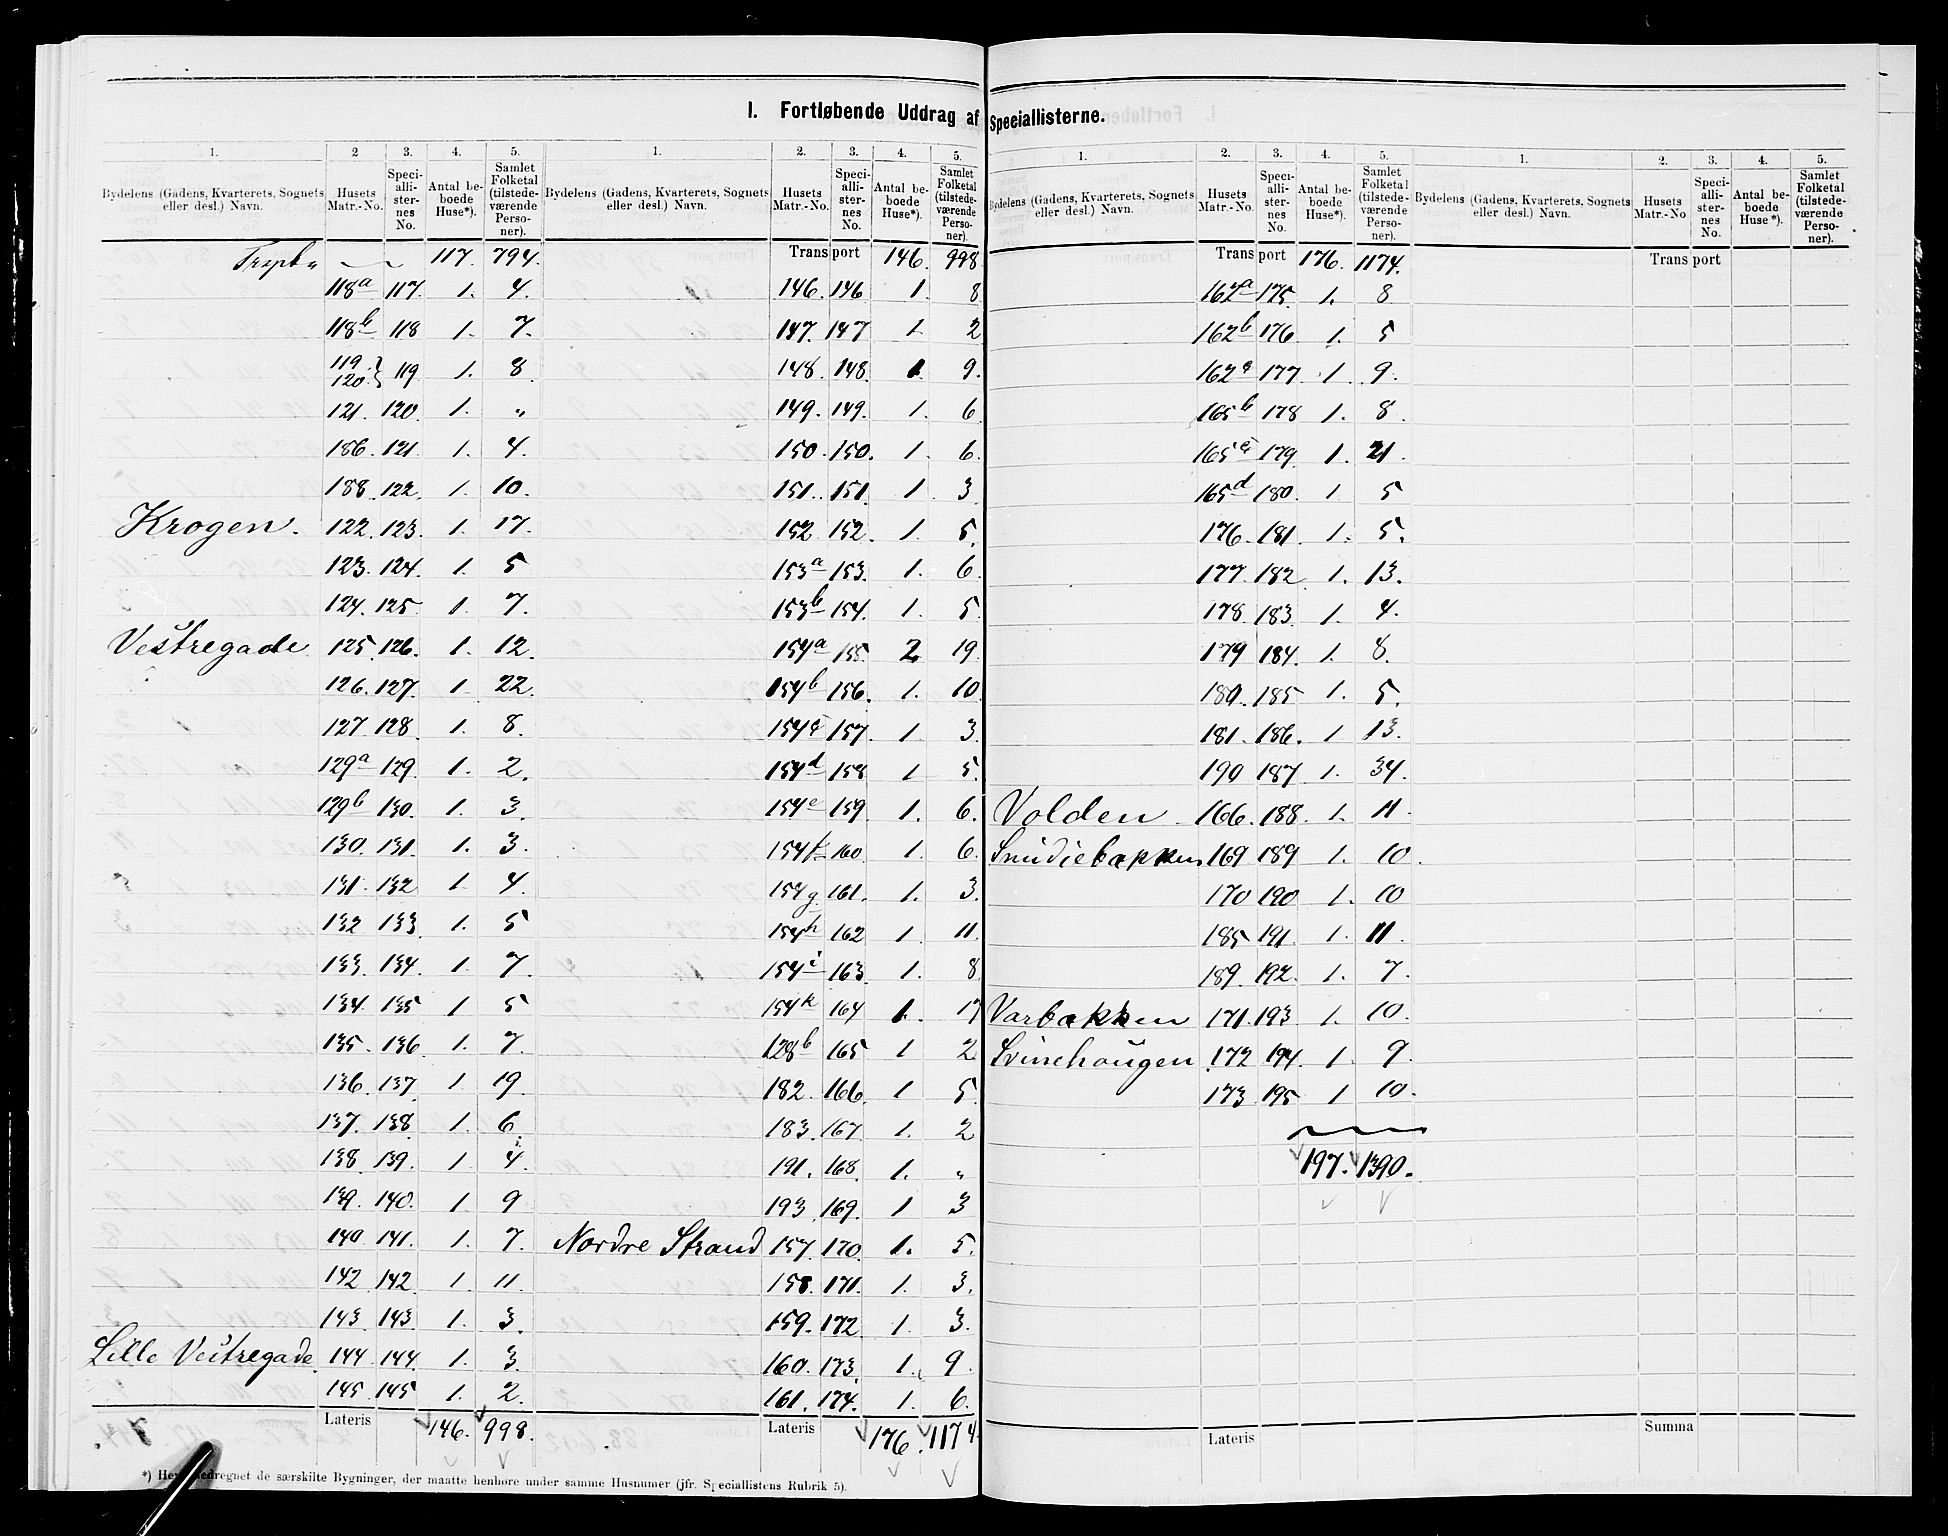 I. Fortløbende Uddrag af Speciallisterne.
1. 2 3. 4. 5. 1. 2. 3. 4. 5.
Bydelens (Gadens, Kvarterets, Sognets eller desl.) Navn. Husets Matr.-No. Speci-alli-ster-nes No. Antal be-boede Huse*). Samlet Folketal (tilstede-værende Perso-ner). Bydelens (Gadens, Kvarterets, Sognets eller desl.) Navn. Husets Matr.-No. Speci-alli-ster-nes No. Antal be-boede Huse*). Samlet Folketal (tilstede-værende Perso-ner).
117. 794.
118a 117. 1. 4.
118b 118 1. 7.
119. 120. } 119 1. 8.
121. 120. 1. „
186. 121. 1. 4.
188. 122. 1. 10.
Krogen. 122. 123. 1. 17.
123. 124. 1. 5
124. 125 1. 7.
Vestregade 125. 126. 1. 12.
126. 127. 1 22.
127. 128. 1. 8.
129a 129. 1. 2.
129b 130. 1. 3.
130. 131. 1. 3.
131. 132 1. 4.
132 133. 1. 5
133. 134. 1. 7.
134. 135 1 5
135. 136. 1. 7.
136. 137. 1 19
137. 138. 1. 6
138. 139. 1 4.
139. 140. 1 9
140. 141. 1. 7.
142 142. 1 11.
143. 143. 1. 3.
Lille Vestregade. 144. 144. 1. 3.
145. 145 1. 2.
Lateris 146. 998.
Transport 146. 998
146. 146 1. 8
147. 147 1. 2
148. 148. 1. 9.
149. 149. 1. 6
150. 150. 1. 6.
151. 151. 1. 3
152 152. 1. 5.
153a 153. 1. 6.
153b 154. 1. 5
154a 155. 2 19
154b 156. 1. 10
154c 157. 1 3.
154d 158 1 5.
154e 159 1. 6.
154f 160 1. 6.
154g 161. 1. 3.
154h 162 1. 11.
154i 163. 1. 8
154k 164 1. 17
128b 165 1 2
182. 166. 1 5.
183. 167. 1. 2
191. 168. 1. „
193. 169. 1 3
Nordre Strand 157. 170. 1. 5.
158. 171. 1. 3.
159. 172 1. 3.
160. 173. 1. 9.
161. 174. 1. 6.
Lateris 176. 1174.
*) Her medregnet de særskilte Bygninger, der maatte henhøre under samme Husnumer (jfr. Speciallistens Rubrik 5).
1. 2. 3. 4. 5. 1. 2. 3. 4. 5.
Bydelens (Gadens, Kvarterets, Sognets eller desl.) Navn. Husets Matr.-No. Speci-alli-ster-nes No. Antal be-boede Huse*). Samlet Folketal (tilstede-værende Perso-ner). Bydelens (Gadens, Kvarterets, Sognets eller desl.) Navn. Husets Matr.-No. Speci-alli-ster-nes No. Antal be-boede Huse*). Samlet Folketal (tilstede-værende Perso-ner).
Transport 176. 1174.
162a 175. 1. 8
162b 176 1. 5
177 1. 9.
165b 178 1. 8.
165c 179. 1. 21.
165d 180. 1 5
176. 181. 1. 5.
177. 182 1. 13.
178. 183. 1. 4.
179 184. 1. 8.
180. 185 1. 5.
181. 186. 1 13.
190 187 1. 34.
Volden. 166. 188. 1. 11.
Smidiebakken 169 189 1. 10.
170 190 1. 10
185 191. 1. 11.
189. 192. 1. 7.
Varbakken 171. 193. 1. 10.
Svinehaugen 172 194. 1. 9.
173 195 1 10.
197. 1390.
Lateris
Transport
Summa